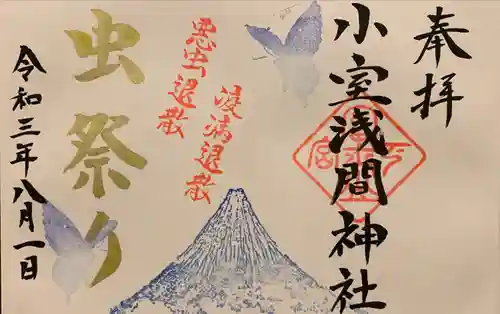 奉拝
小室浅間神社
悪虫退散
疫病退散
虫祭り
令和三年八月一日